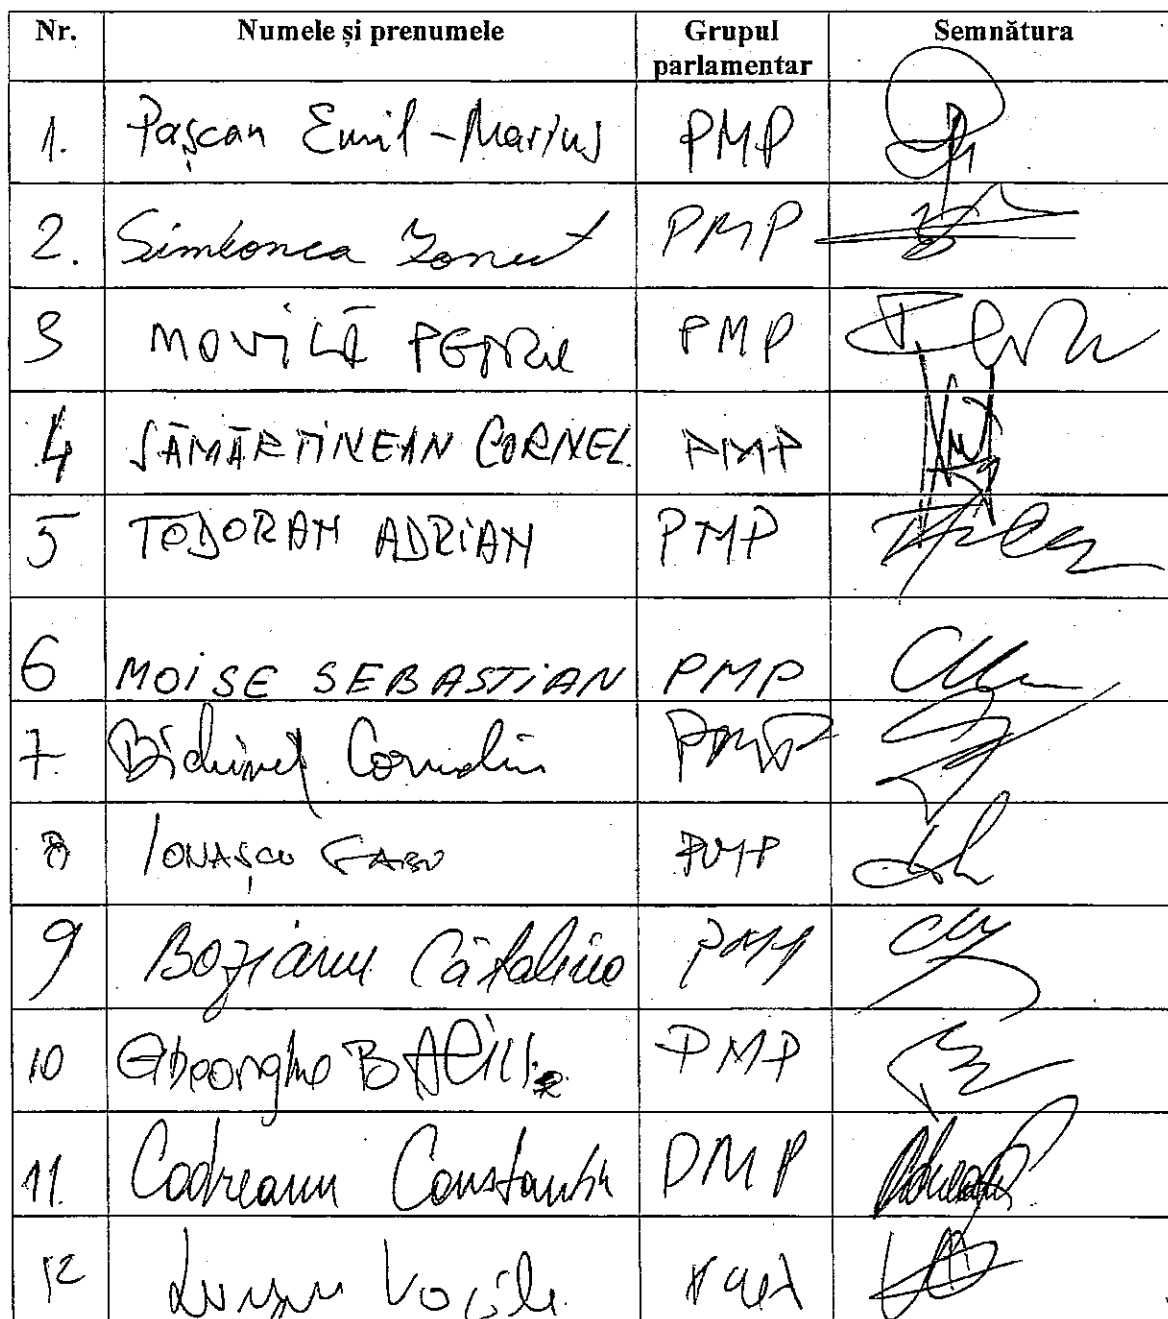 Nr. Numele și prenumele Grupul parlamentar Semnătura
1. Pașcan Emil-Marius PMP
2. Simionca Ionuț PMP
3 MOVILĂ PETRU PMP
4 SĂMĂRTINEAN CORNEL PMP
5 TODORAN ADRIAN PMP
6 MOISE SEBASTIAN PMP
7. Bichineț Corneliu PMP
8 IONAȘCU GABI PMP
9 Bozianu Cătălina PMP
10 Gheorghe PMP
11. Codreanu Constantin PMP
12 Vasile